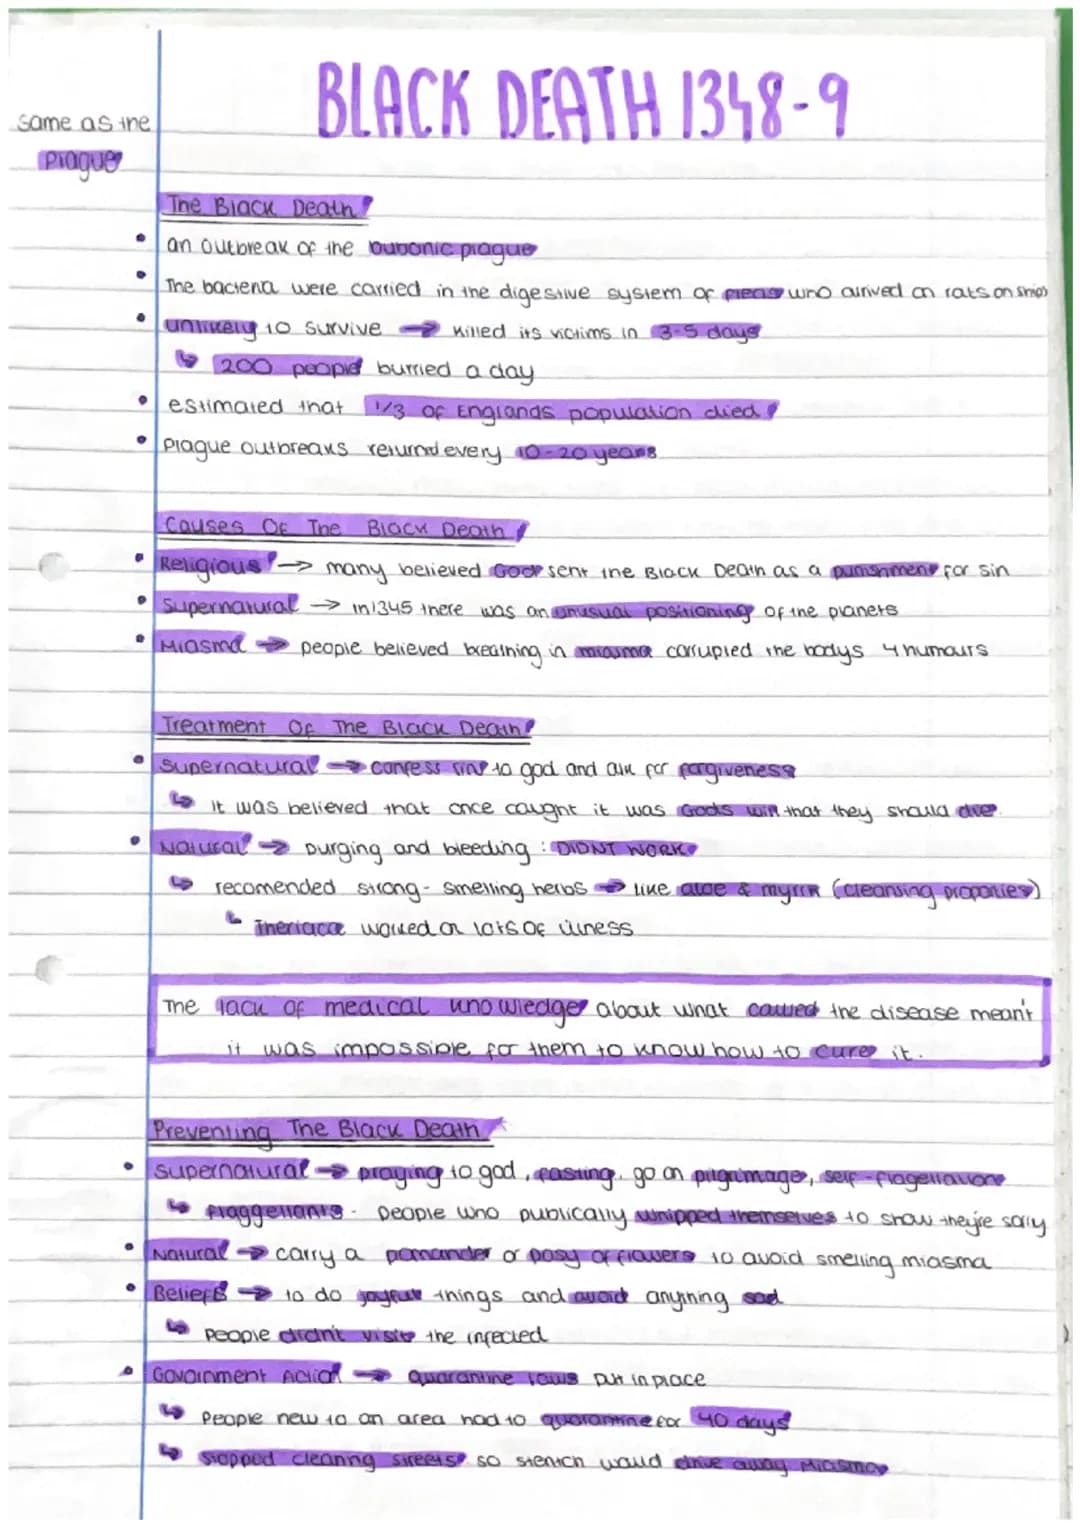 BLACK DEATH 1348-9
same as the
plague
The Black Death
an outbreak of the bubonic plague
The bacteria were carried in the digestive system of fleas who arrived on rats on ships
unlikely to survive → killed its victims in 3-5 days
↳ 200 people burried a day
estimated that 1/3 of Englands population died
Plague outbreaks returned every 10-20 years
Causes Of The Black Death
Religious → many believed God sent the Black Death as a punishment for sin
Supernatural → in 1345 there was an unusual positioning of the planets
Miasma → people believed breathing in miasma corrupted the bodys 4 humours
Treatment Of The Black Death
Supernatural → confess sins to god and ask for forgiveness
↳ it was believed that once caught it was Gods will that they should die.
Natural → purging and bleeding : DIDNT WORK
↳ recomended strong-smelling herbs → like aloe & myrrh (cleansing properties)
↳ Theriaca worked on lots of illness
The lack of medical knowledge about what caused the disease mean't
it was impossible for them to know how to cure it.
Preventing The Black Death
Supernatural → praying to god, fasting, go on pilgrimage, self-flagellation
↳ Flaggellants - people who publically whipped themselves to show they're sorry
Natural → carry a pomander or posy of flowers to avoid smelling miasma
Beliefs → to do joyful things and avoid anything sad
↳ People didn't visit the infected
Government Action → quarantine laws put in place
↳ People new to an area had to quarantine for 40 days
↳ stopped cleaning streets so stench would drive away Miasma